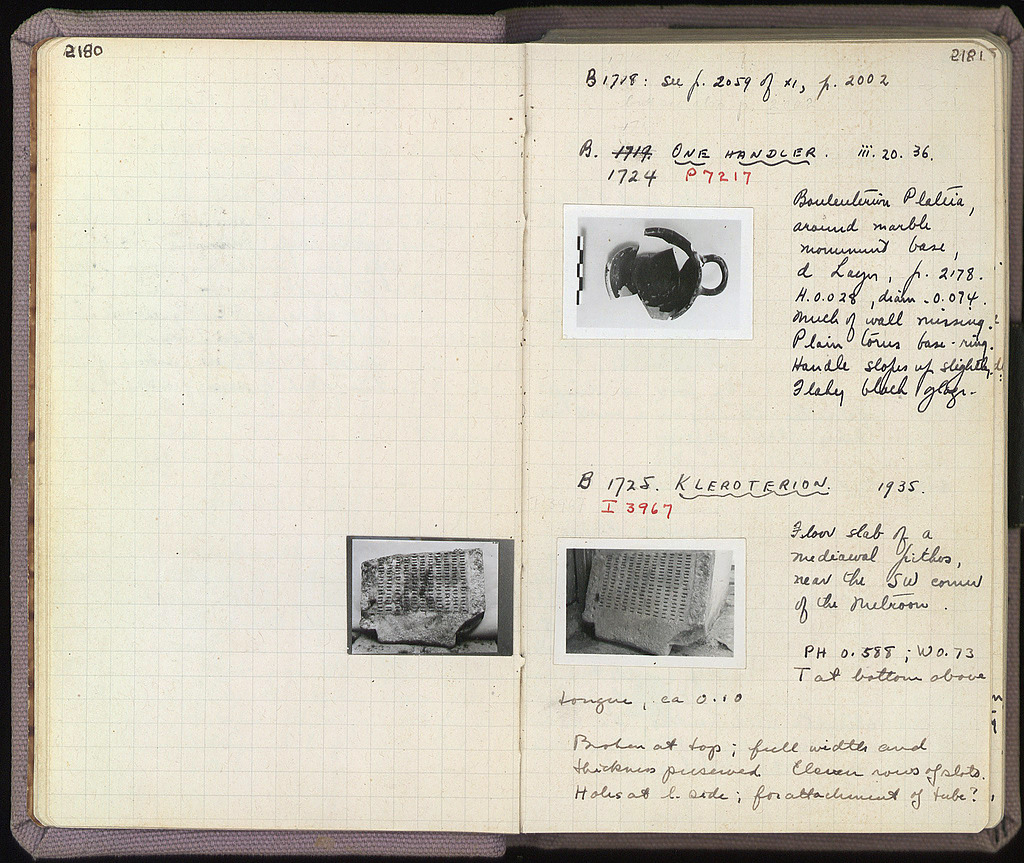 2180
2181
B 1718: see p. 2059 of XI, p. 2002
B. 1719. ONE HANDLER. iii. 20. 36.
1724 P 7217
Bouleuterion Plateia,
around marble
monument base,
d Layer, p. 2178.
H. 0.028, diam. 0.074.
Much of wall missing.
Plain torus base-ring.
Handle slopes up slightly.
Flaky black glaze.
B 1725. KLEROTERION. 1935.
I 3967
Floor slab of a
mediaeval pithos,
near the SW corner
of the Metroon.
PH 0.588; W 0.73
T at bottom above
tongue, ca 0.10
Broken at top; full width and
thickness preserved Eleven rows of slots.
Holes at l. side; for attachment of tube?